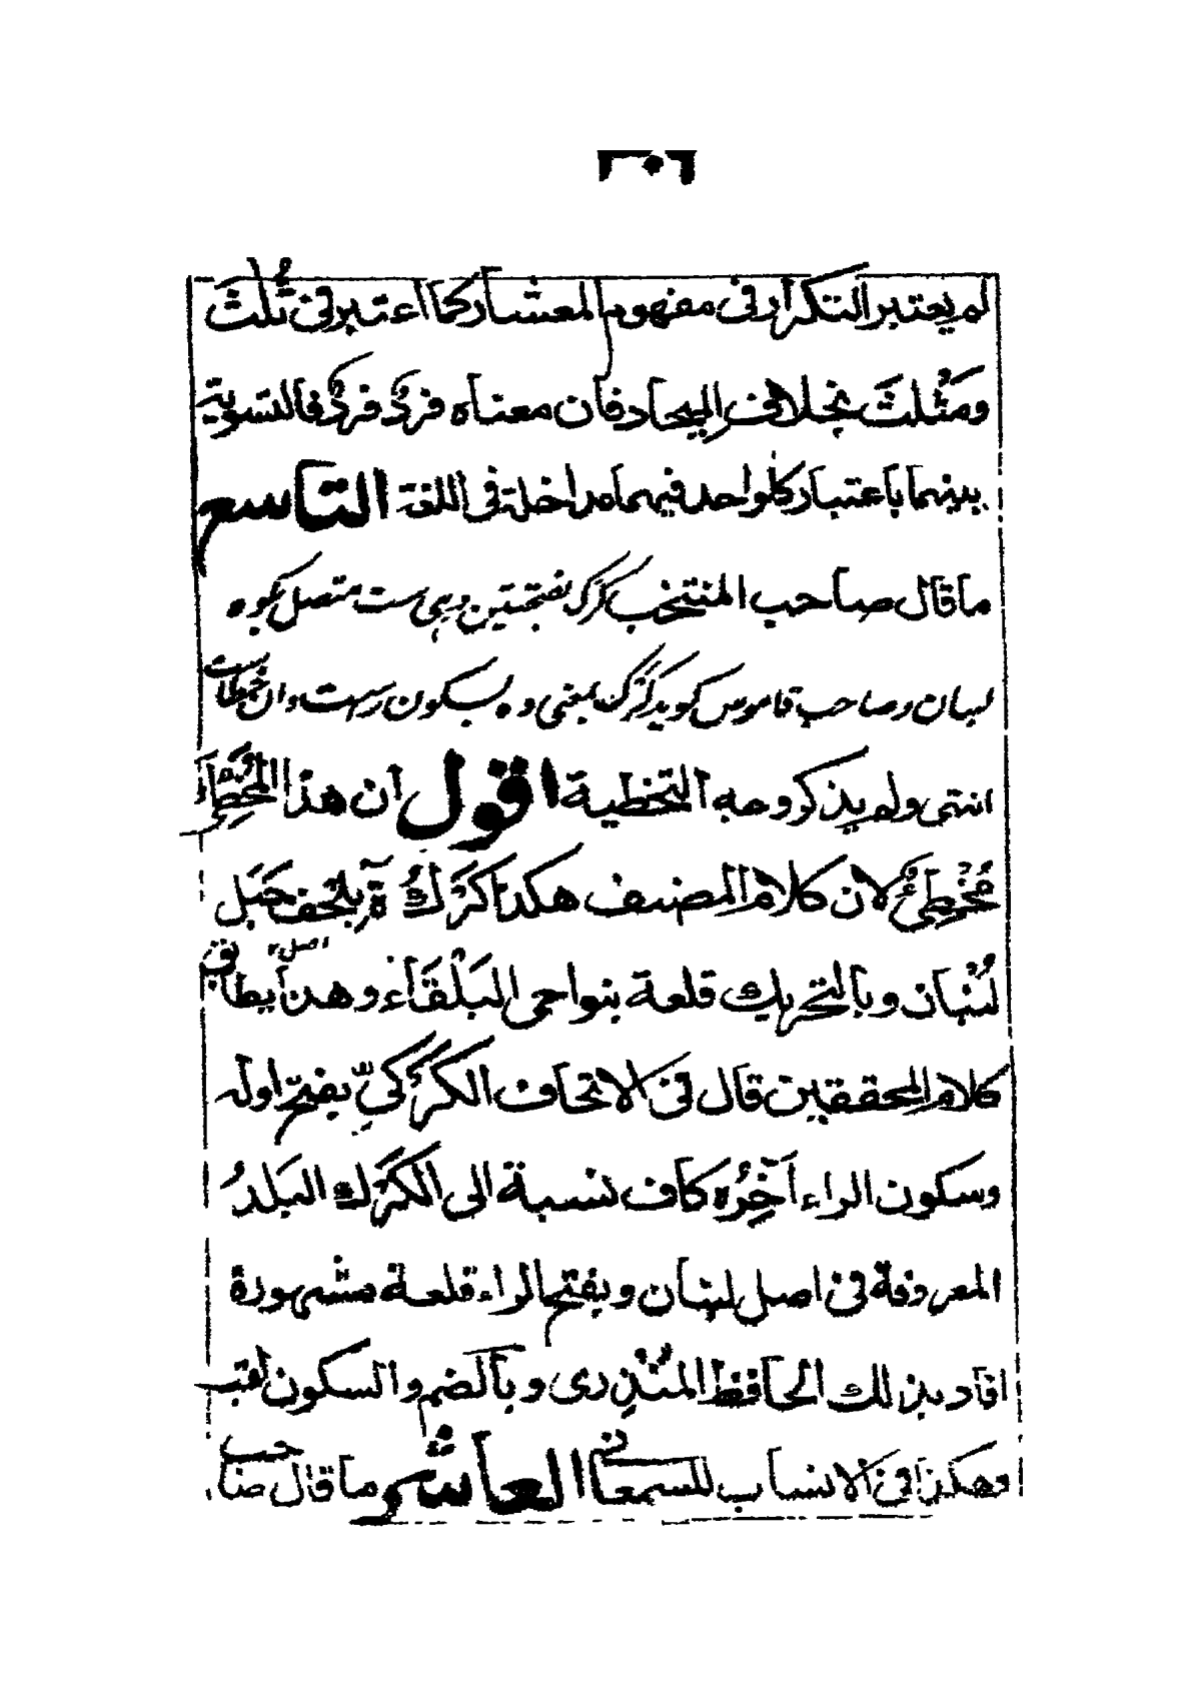 لم يعتبر التكرار فى مفهوم المعشار كما اعتبر فى ثُلثَ
ومَثْلثَ بخلاف الميحاد فان معناه فردٌ فردٌ فالتسوية
بينهما باعتبار كلواحد فيهما مداخلة فى اللغة التاسع
ما قال صاحب المنتخب كرك بفتحتين دهى ست متصل بكوه
لبنان وصاحب قاموس گويد كرك بمعنى ده بسكون رست وان خطاست
انتهى ولم يذكر وجه التخطية اقول ان هذا المُخَطِّأَ
مُخْطِئٌ لان كلام المصنف هكذا كَرْكُ ة بلحف جَبَل
لُبْنان وبالتحريك قلعة بنواحى البَلْقَاء وهذا يطابق
اصل
كلام المحققين قال فى الاتحاف الكَرْكَىِّ بفتح اوله
وسكون الراء آخِرُه كاف نسبة الى الكَرْك البَلَدُ
المعروفة فى اصل لبنان وبفتح الراء قلعة مشهورة
افاد بذلك الحافظ المُنْذِرى وبالضم والسكون لقب
وهكذا فى الانساب للسمعانى العاشر ما قال صاحب